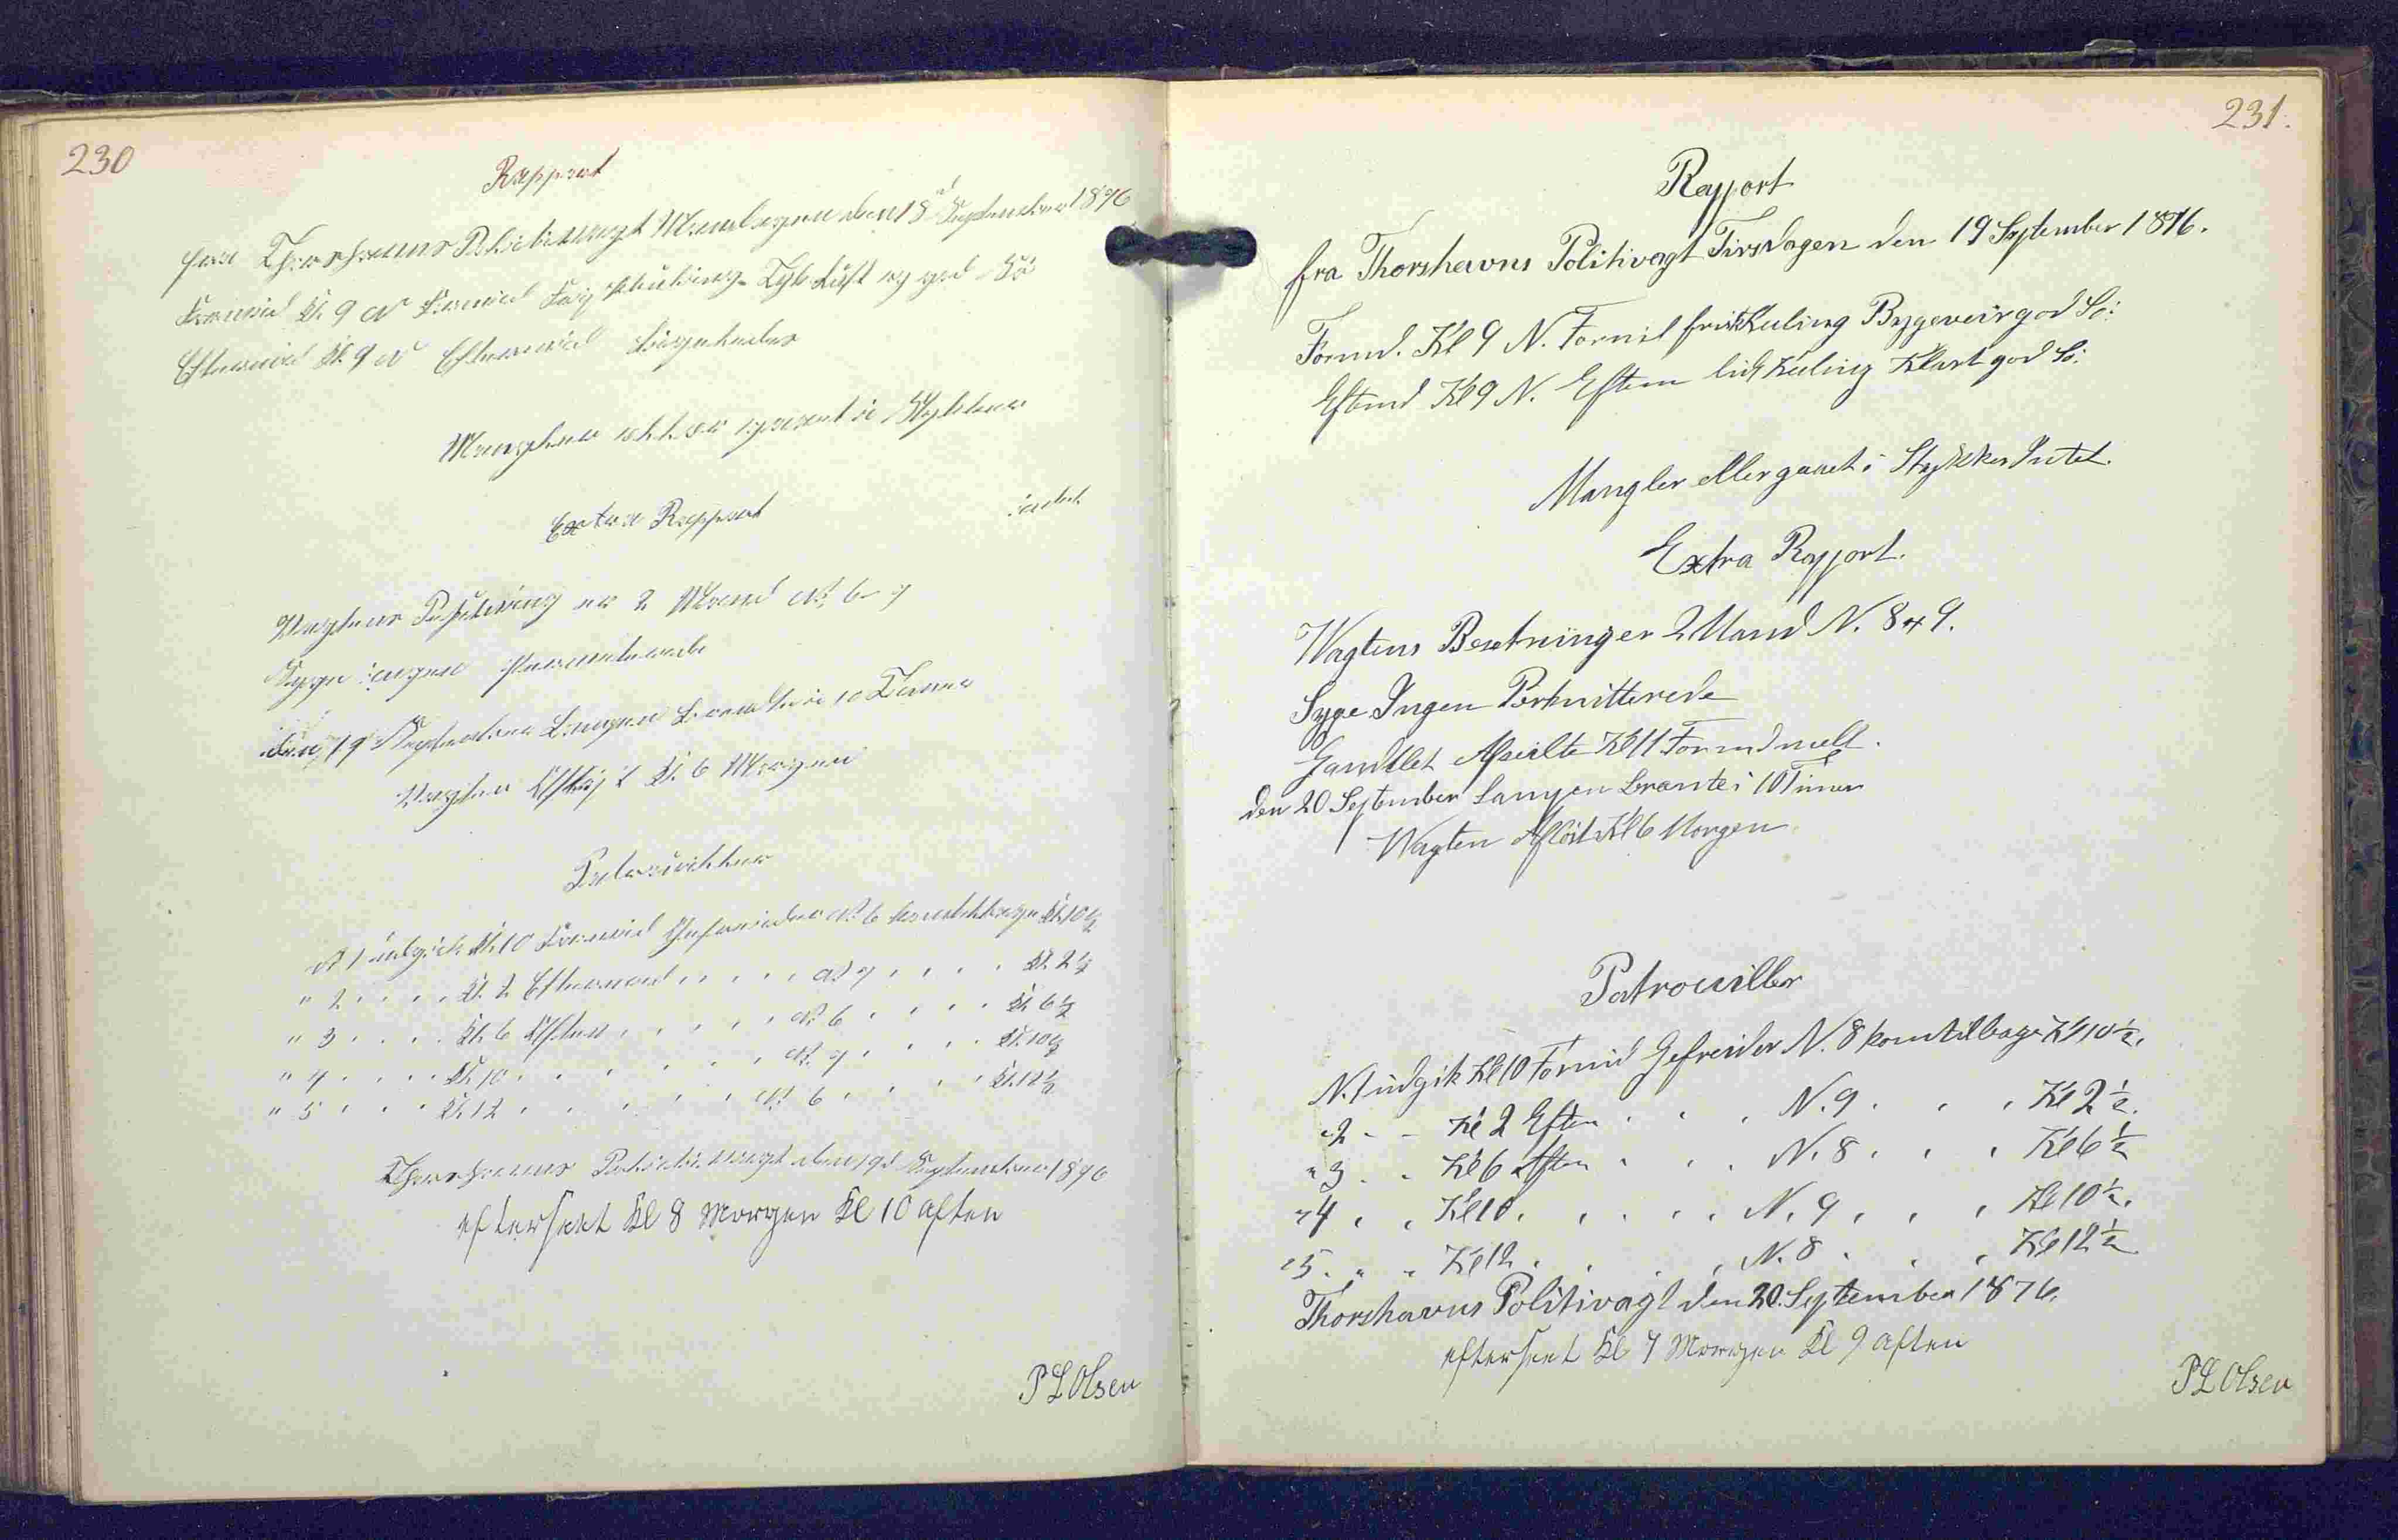 230
Rapport
fra Thorshavns Politivagt Mandagen den 18d September 1876
Formid Kl. 9 N Formid Lög Kuling Tyk Luft og god Sö
Eftermid Kl. 9 N Eftermid ligeledes
Mangler eller ganet i Stykker
intet
Extra Rapport
Vagtens Besetning er 2 Mand N. 6 - 7
Syge ingen Permiterede
den 19 September Langen Brendte i 10 Timer
Vagten Aflöst Kl. 6 Morgen
Patrouiller
N 1 udgik Kl. 10 Formid Gefreider N. 6 kom tilbage Kl. 10 1/2
" 2 " " " Kl. 2 Eftermid " " " " N. 7 " " " " Kl. 2 1/2
" 3 " " " Kl. 6 Aften " " " " N. 6 " " " " Kl. 6 1/2
" 4 " " " Kl. 10 " " " " " N. 7 " " " " Kl. 10 1/2
" 5 " " " Kl. 12 " " " " " N. 6 " " " " Kl. 12 1/2
Thorshavns Politivagt den 19d September 1876
efterseet Kl 8 Morgen Kl 10 aften
P L Olsen
231.
Rapport
fra Thorshavns Politivagt Tirsdagen den 19 September 1876.
Formd. Kl 9 N. Formid frisk Kuling Bygeveir god Sö:
Eftmd Kl 9 N. Eftem lidt Kuling Klart god Sö:
Mangler eller ganet i Stykker Intet.
Extra Rapport.
Wagtens Besetning er 2 Mand N. 8 & 9.
Syge Ingen Permitterede
Afseilte Kl 11 Formd
den 20 September Langen Brante i 10 Timer
Wagten Aflöst Kl 6 Morgen
Patrouiller
N. 1 udgik Kl 10 Formid Gefreider N. 8 kom tilbage Kl 10 1/2.
" 2 - - Kl 2 Eften " " " N. 9 " " " Kl 2 1/2.
" 3 " " Kl 6 Aften " " " N. 8 " " " Kl 6 1/2
" 4 " " Kl 10. " " " " N. 9 " " " Kl 10 1/2.
" 5 " " " Kl 12 " " " " N. 8 " " " Kl 12 1/2
Thorshavns Politivagt den 20. September 1876.
efterseet Kl 7 Morgen Kl 9 aften
P L Olsen